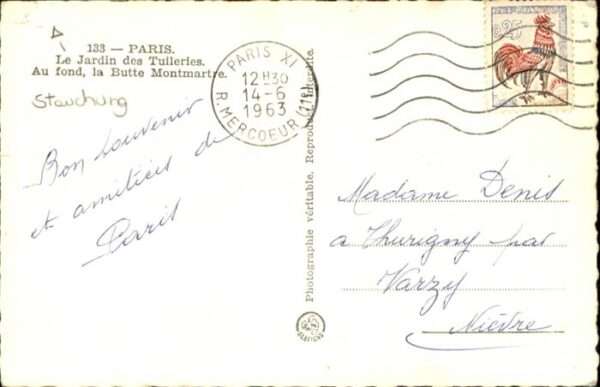 133 — PARIS.
Le Jardin des Tuileries.
Au fond, la Butte Montmartre.
Bon souvenir
et amitiées de
Paris
PARIS XI
12H30
14-6
1963
R. MERCOEUR (11e)
Photographie véritable. Reproduction interdite.
0,25
Madame Denis
a Thurigny par
Varzy
Nièvre